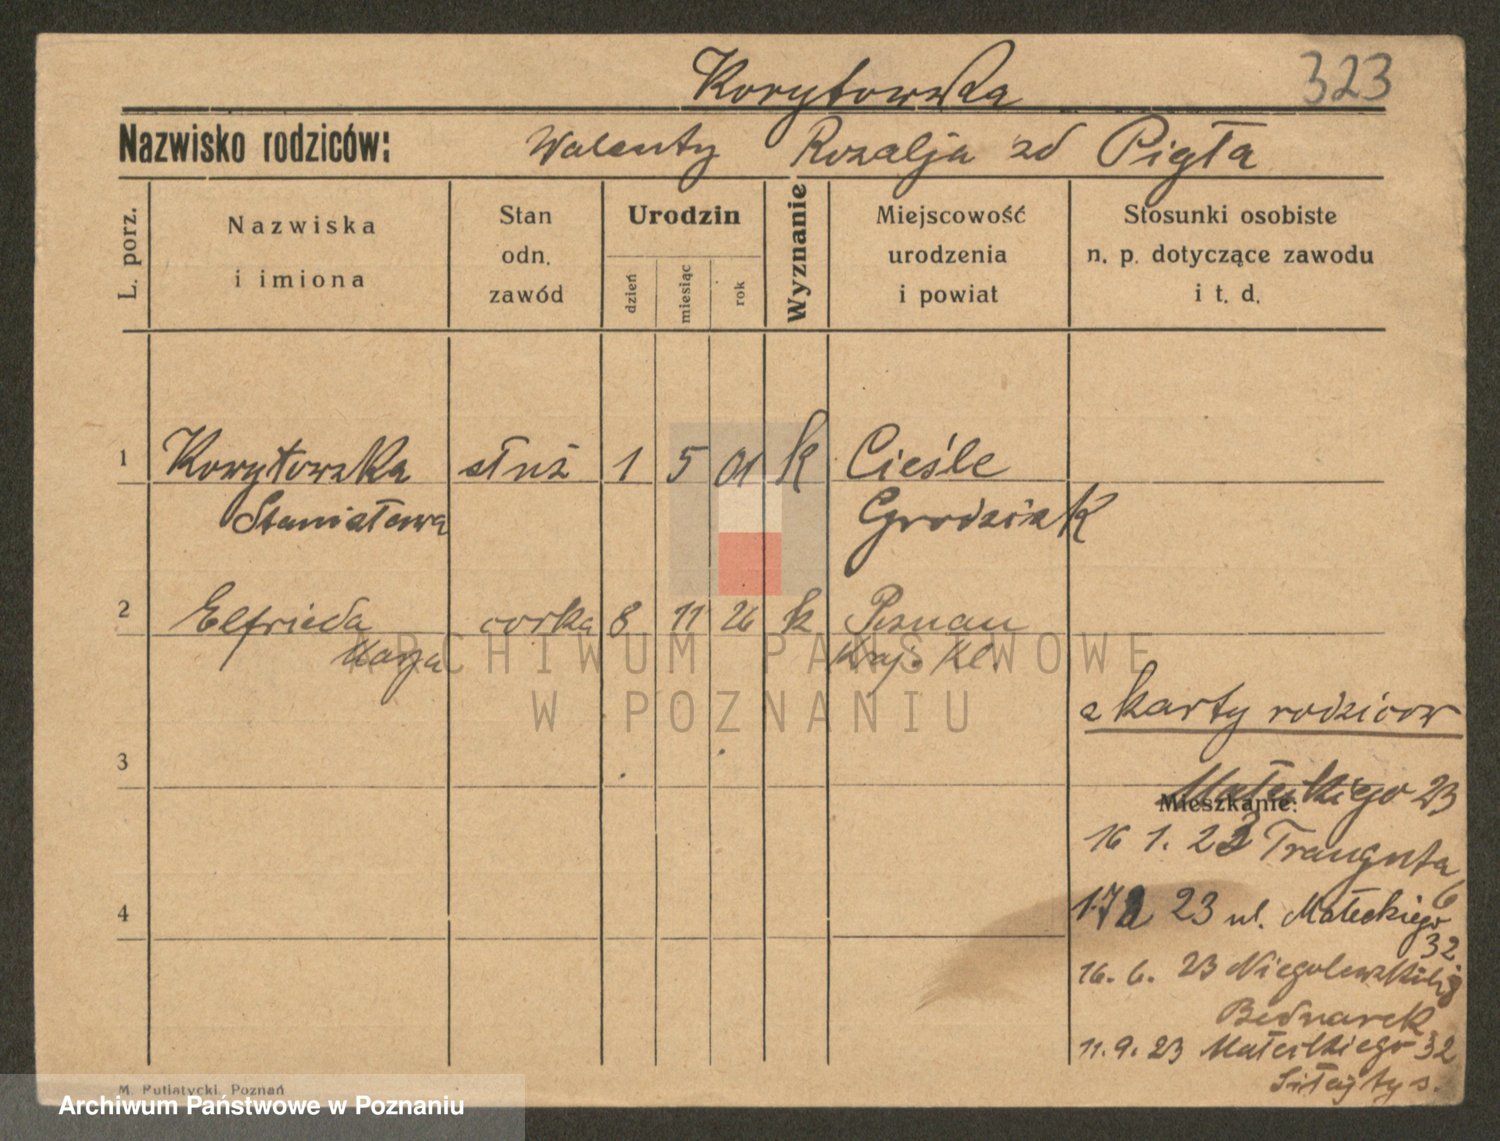 Korytowska 323
Nazwisko rodziców: Walenty Rozalja zd Pigła
L. porz.
Nazwiska
i imiona
Stan
odn.
zawód
Urodzin
dzień
miesiąc
rok
Wyznanie
Miejscowość
urodzenia
i powiat
Stosunki osobiste
n. p. dotyczące zawodu
i t. d.
1 Korytowska służ 1 5 01 k Cieśle
Stanisława Grodzisk
2 Elfrieda córka 8 11 26 k Poznan
ARCHIWUM PAŃSTWOWE
W POZNANIU
z karty rodzicow
3
Małeckiego 23
Mieszkanie:
16 1. 23 Traugutta
6
4
23 ul. Małeckiego
32
16. 6. 23
Bednarek
11. 9. 23 Małeckiego 32
M. Putiatycki, Poznań
Archiwum Państwowe w Poznaniu